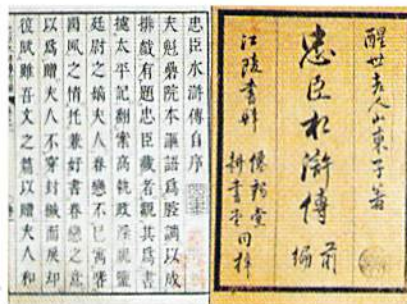 醒世老人山東子著
忠臣水滸傳 前編
江陵書肆
僊鶴堂
耕書堂 同梓
忠臣水滸傳自序
夫魁磊院本謳語爲腔調以成
排戲有題忠臣藏者觀其爲書
據太平記翻案高執政淫視鹽
廷尉之嫡夫人眷戀不已寓
閨風之情托兼好書眷戀之意
以爲贈夫人不穿封緘而展却
彼賦雖吾文之篇以贈夫人和